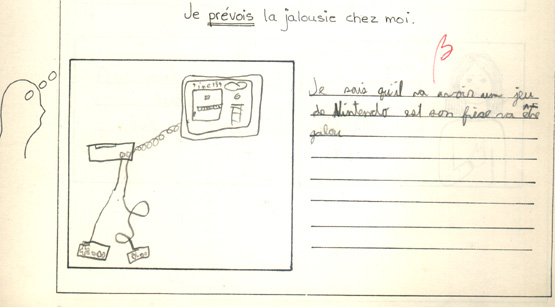 Je prévois la jalousie chez moi.
B
Je sais qu'il va avoir um jeu
de Nintendo est son frère va être
galou